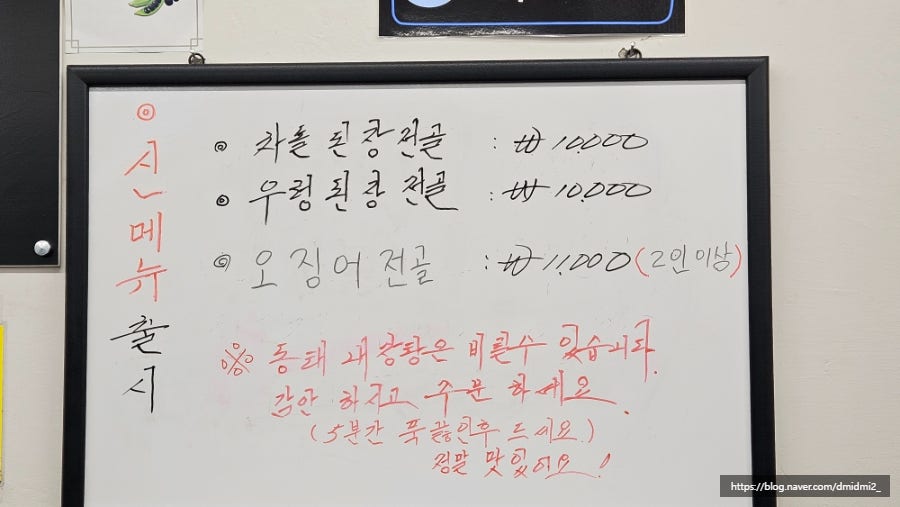 ◎ 신메뉴 출시
◎ 차돌 된장전골 : ₩ 10.000
◎ 우렁된장 전골 : ₩ 10.000
◎ 오징어 전골 : ₩ 11.000 (2인 이상)
※ 동태 내장탕은 비릴수 있습니다.
감안 하시고 주문 하세요.
(5분간 푹 끓인후 드세요.)
정말 맛있어요!
https://blog.naver.com/dmidmi2_